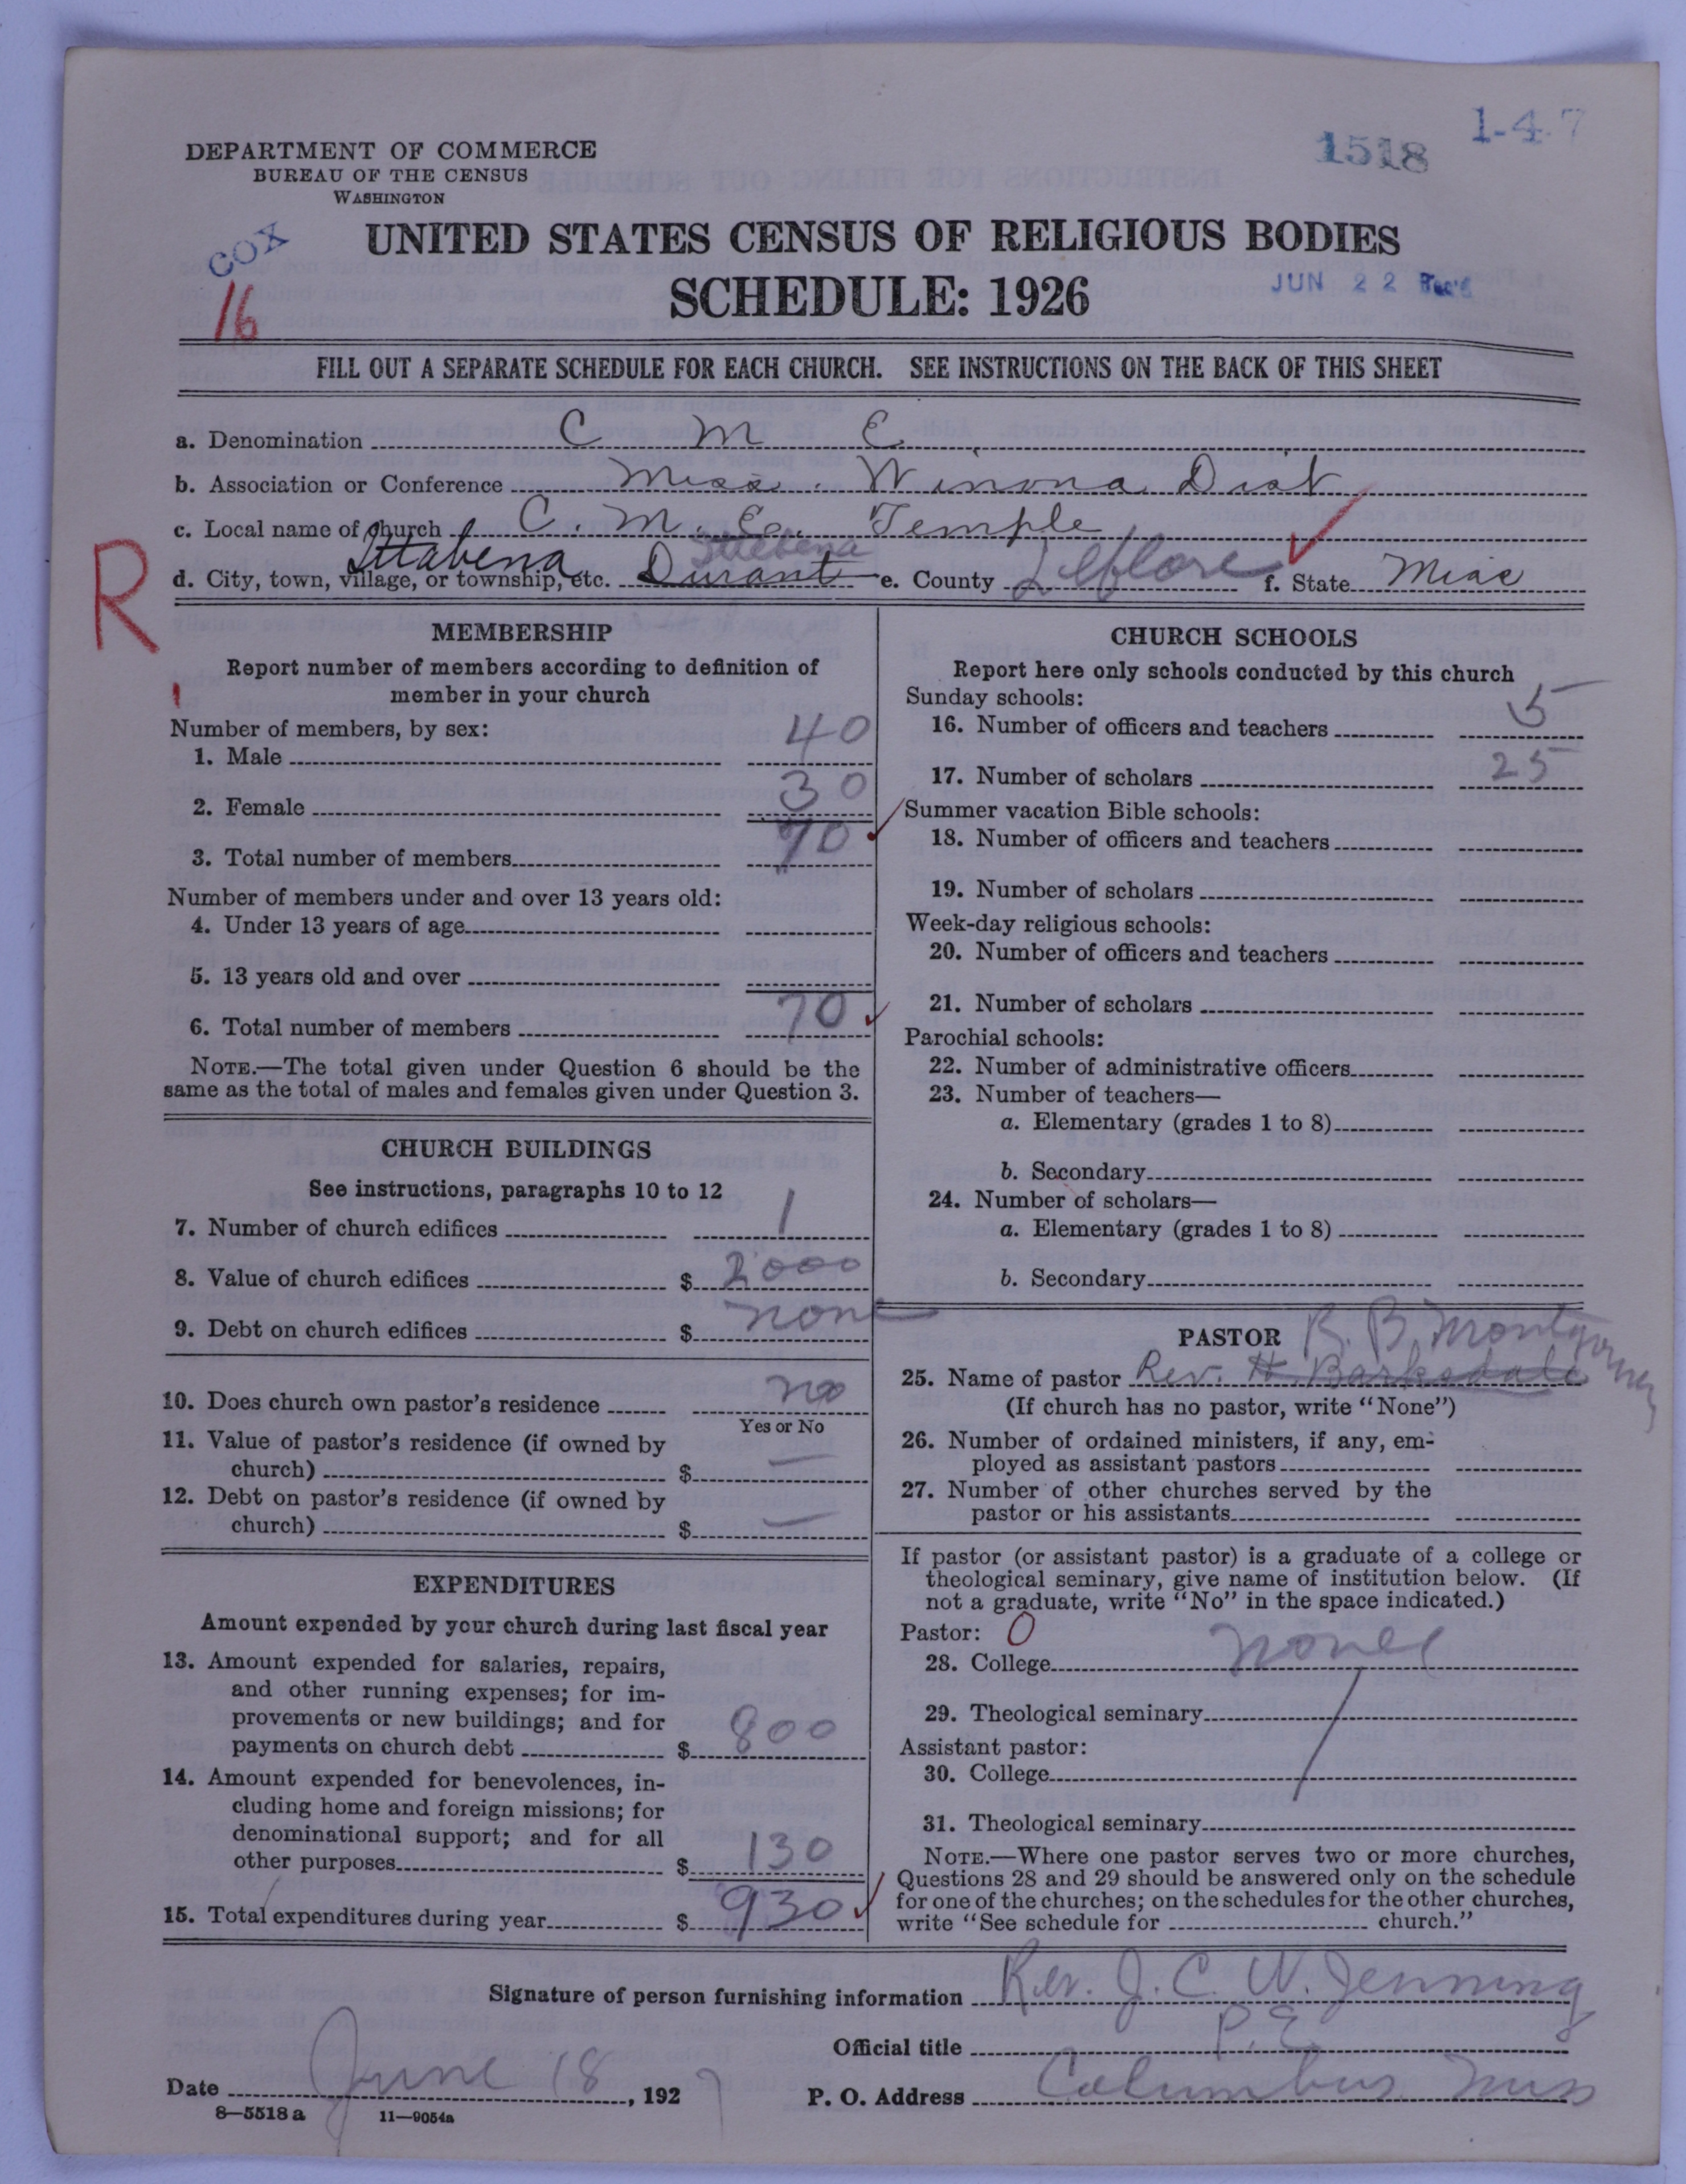 1-4-7
1518
DEPARTMENT OF COMMERCE
BUREAU OF THE CENSUS
WASHINGTON
COX
16
UNITED STATES CENSUS OF RELIGIOUS BODIES
SCHEDULE: 1926
JUN 22 Rec'd
FILL OUT A SEPARATE SCHEDULE FOR EACH CHURCH. SEE INSTRUCTIONS ON THE BACK OF THIS SHEET
a. Denomination C M E
b. Association or Conference Miss. Winona Dist
c. Local name of church C. M. E. Temple
Ittabena Ittebena
d. City, town, village, or township, etc. Durant e. County Leflore f. State Miss
R
MEMBERSHIP
Report number of members according to definition of
member in your church
Number of members, by sex:
1. Male 40
2. Female 30
3. Total number of members 70
Number of members under and over 13 years old:
4. Under 13 years of age
5. 13 years old and over
6. Total number of members 70
NOTE.—The total given under Question 6 should be the
same as the total of males and females given under Question 3.
CHURCH BUILDINGS
See instructions, paragraphs 10 to 12
7. Number of church edifices 1
8. Value of church edifices $ 2000
9. Debt on church edifices $ none
10. Does church own pastor's residence no
Yes or No
11. Value of pastor's residence (if owned by
church) $ —
12. Debt on pastor's residence (if owned by
church) $ —
EXPENDITURES
Amount expended by your church during last fiscal year
13. Amount expended for salaries, repairs,
and other running expenses; for im-
provements or new buildings; and for
payments on church debt $ 800
14. Amount expended for benevolences, in-
cluding home and foreign missions; for
denominational support; and for all
other purposes $ 130
15. Total expenditures during year $ 930
CHURCH SCHOOLS
Report here only schools conducted by this church
Sunday schools:
16. Number of officers and teachers 5
17. Number of scholars 25
Summer vacation Bible schools:
18. Number of officers and teachers
19. Number of scholars
Week-day religious schools:
20. Number of officers and teachers
21. Number of scholars
Parochial schools:
22. Number of administrative officers
23. Number of teachers—
a. Elementary (grades 1 to 8)
b. Secondary
24. Number of scholars—
a. Elementary (grades 1 to 8)
b. Secondary
PASTOR R. B. Montgomery
25. Name of pastor Rev. H. Barksdale
(If church has no pastor, write "None")
26. Number of ordained ministers, if any, em-
ployed as assistant pastors
27. Number of other churches served by the
pastor or his assistants
If pastor (or assistant pastor) is a graduate of a college or
theological seminary, give name of institution below. (If
not a graduate, write "No" in the space indicated.)
Pastor: 0
28. College none
29. Theological seminary
Assistant pastor:
30. College
31. Theological seminary
NOTE.—Where one pastor serves two or more churches,
Questions 28 and 29 should be answered only on the schedule
for one of the churches; on the schedules for the other churches,
write "See schedule for church."
Signature of person furnishing information Rev. J. C. W. Jenning
Official title P. E.
Date June 18, 1927 P. O. Address Columbus Miss
8—5518 a 11—9054a